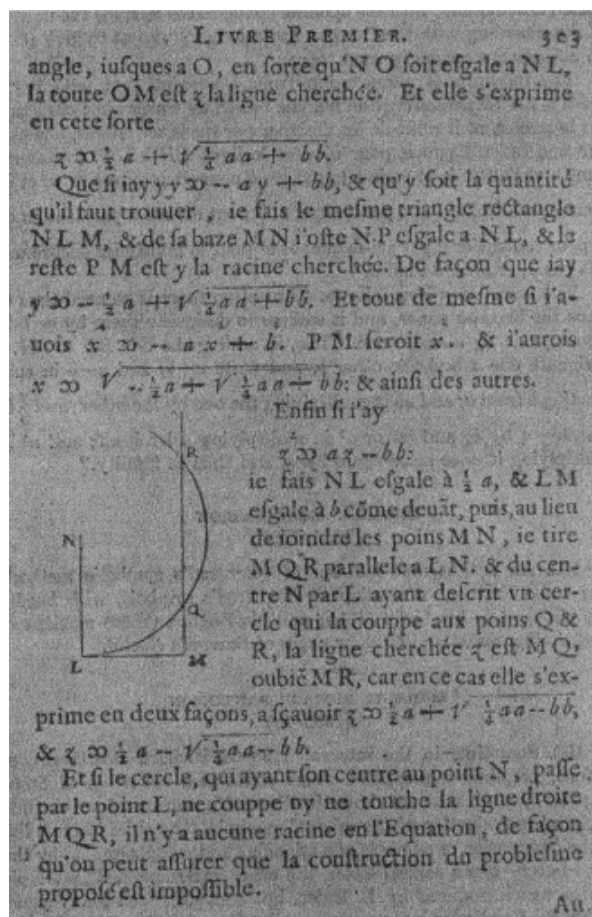 LIVRE PREMIER. 303
angle, iuſques a O, en ſorte qu'N O ſoit eſgale a N L,
la toute O M eſt ʒ la ligne cherchée. Et elle s'exprime
en cete ſorte
ʒ ∞ ½ a + √ ¼ aa + bb.
Que ſi iay yy ∞ -- ay + bb, & qu'y ſoit la quantité
qu'il faut trouuer, ie fais le meſme triangle rectangle
N L M, & de ſa baze M N i'oſte N P eſgale a N L, & le
reſte P M eſt y la racine cherchée. De façon que iay
y ∞ -- ½ a + √ ¼ aa + bb. Et tout de meſme ſi i'a-
uois x⁴ ∞ -- a x² + b². P M ſeroit x². & i'aurois
x ∞ √ -- ½ a + √ ¼ aa + bb: & ainſi des autres.
Enfin ſi i'ay
ʒ² ∞ a ʒ -- bb:
ie fais N L eſgale à ½ a, & L M
eſgale à b cõme deuãt, puis, au lieu
de ioindre les poins M N, ie tire
M Q R parallele a L N. & du cen-
tre N par L ayant deſcrit vn cer-
cle qui la couppe aux poins Q &
R, la ligne cherchée ʒ eſt M Q,
oubiẽ M R, car en ce cas elle s'ex-
prime en deux façons, a ſçauoir ʒ ∞ ½ a + √ ¼ aa -- bb,
& ʒ ∞ ½ a -- √ ¼ aa -- bb.
R
N
Q
L
M
Et ſi le cercle, qui ayant ſon centre au point N, paſſe
par le point L, ne couppe ny ne touche la ligne droite
M Q R, il n'y a aucune racine en l'Equation, de façon
qu'on peut aſſurer que la conſtruction du probleſme
propoſé eſt impoſſible.
Au